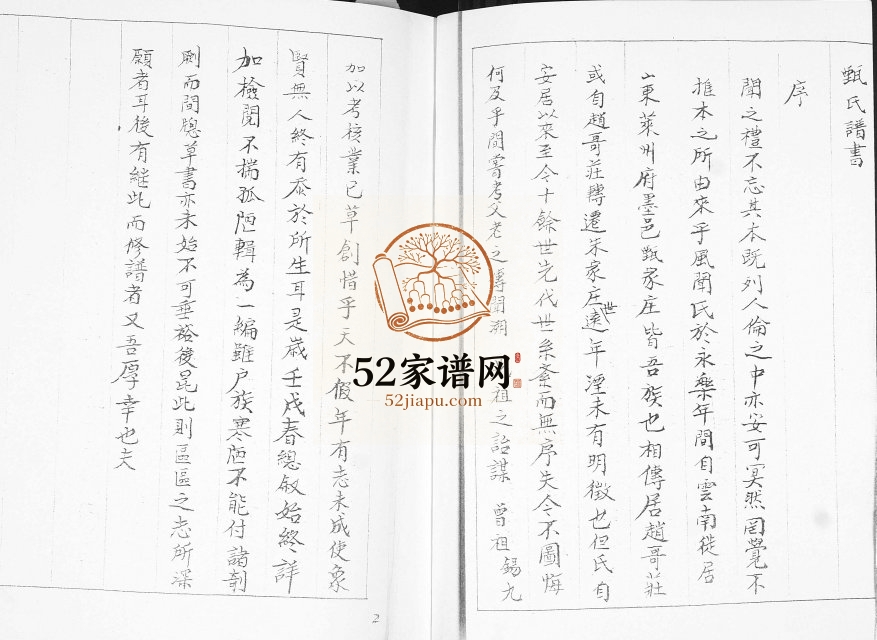 甄氏譜書
序
聞之禮不忘其本既列人倫之中亦安可冥然罔覺不
推本之所由來乎風聞氏於永樂年間自雲南徙居
山東萊州府墨邑甄家庄皆吾族也相傳居趙哥莊
或自趙哥莊轉遷朱家庄世遠年湮未有明徵也但氏自
安居以來至今十餘世先代世系紊而無序失今不圖悔
何及乎間嘗考父老之傳聞朔 祖之詒謀 曾祖錫九
加以考核業已草創惜乎天不假年有志未成使象
賢無人終有忝於所生耳是歲壬戌春總叙始終詳
加檢閱不揣孤陋輯為一編雖戶族寒陋不能付諸剞
劂而間牕草書亦未始不可垂裕後昆此則區區之志所深
願者耳後有繼此而修譜者又吾厚幸也夫
2
52家谱网
52jiapu.com